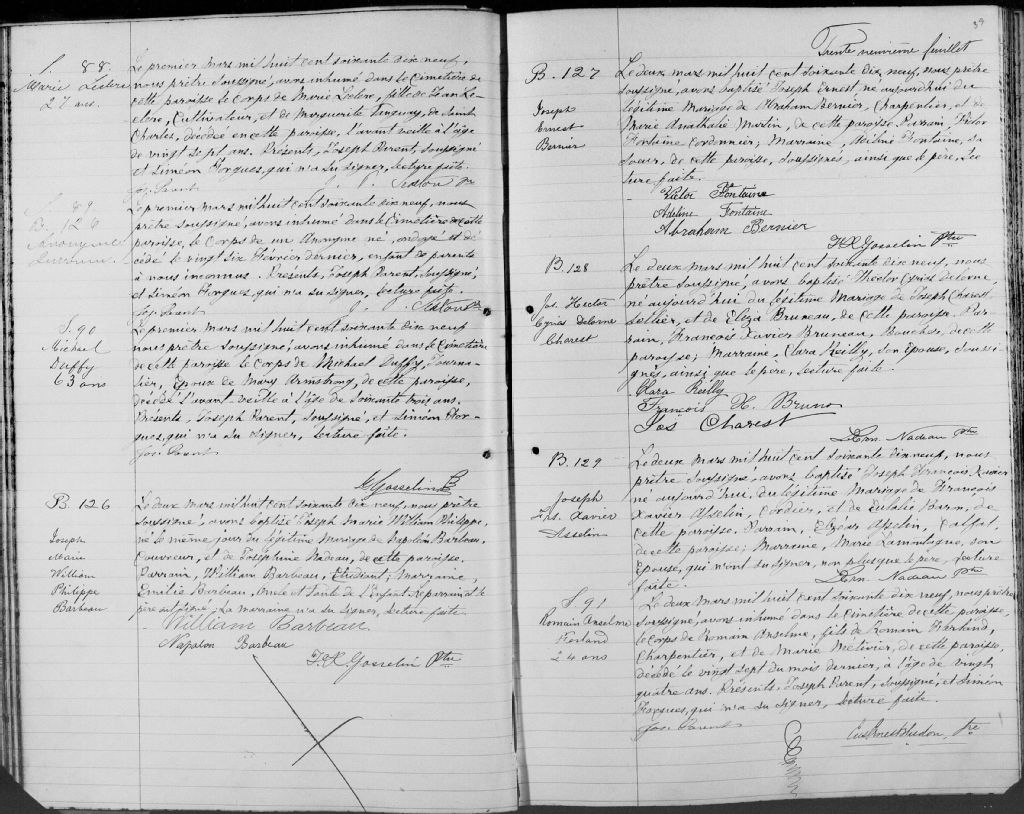 S. 88.
Marie Leclerc
27 ans.
Le premier mars mil huit cent soixante dix neuf,
nous prêtre soussigné, avons inhumé dans le Cimetière de
cette paroisse le corps de Marie Leclerc, fille de Jean Le-
clerc, Cultivateur, et de Marguerite Tanguay, de Saint
Charles, décédée en cette paroisse, l'avant veille à l'âge
de vingt sept ans. Présents, Joseph Parent, soussigné
et Siméon Forgues, qui n'a su signer, lecture faite.
Jos. Parent
S. 89
B. 126
Anonyme
Inconnu.
Le premier mars mil huit cent soixante dix neuf, nous
prêtre soussigné, avons inhumé dans le Cimetière de cette
paroisse, le corps de un Anonyme né, ondoyé et dé
cédé le vingt six Février dernier, enfant de parents
à nous inconnus. Présents, Joseph Parent, soussigné,
et Siméon Forgues, qui n'a su signer, lecture faite.
Jos. Parent
S. 90
Michael
Duffy
63 ans
Le premier mars mil huit cent soixante dix neuf
nous prêtre soussigné, avons inhumé dans le Cimetière
de cette paroisse le corps de Michael Duffy, Journa-
lier, Epoux de Mary Armstrong, de cette paroisse,
décédé l'avant veille à l'âge de soixante trois ans.
Présents, Joseph Parent, soussigné, et Siméon For-
gues, qui n'a su signer, lecture faite.
Jos. Parent
Gosselin
B. 126
Joseph
Marie
William
Philippe
Barbeau
Le deux mars mil huit cent soixante dix neuf, nous prêtre
soussigné, avons baptisé Joseph Marie William Philippe,
né le même jour du légitime mariage de Napoléon Barbeau,
Couvreur, et de Joséphine Nadeau, de cette paroisse.
Parrain, William Barbeau, Etudiant; marraine,
Emélie Barbeau, Oncle et Tante de l'Enfant. Le parrain et le
père ont signé; La marraine n'a su signer, lecture faite
William Barbeau
Napoléon Barbeau
F. X. Gosselin Ptre
39
Trente neuvième feuillet
B. 127
Joseph
Ernest
Bernier
Le deux mars mil huit cent soixante dix neuf, nous prêtre
soussigné, avons baptisé Joseph Ernest né aujourd'hui du
légitime Mariage de Abraham Bernier, Charpentier, et de
Marie Anathalie Martin, de cette paroisse. Parrain, Victor
Fontaine cordonnier; Marraine, Adeline Fontaine, sa
soeur, de cette paroisse, soussignés, ainsi que le père, lec
ture faite.
Victor Fontaine
Adeline Fontaine
Abraham Bernier
F. X. Gosselin Ptre
B. 128
Jos. Hector
Cyriés Delorne
Charest
Le deux mars mil huit cent soixante dix neuf, nous
prêtre soussigné, avons baptisé Hector Cyriés Delorne,
né aujourd'hui du légitime Mariage de Joseph Charest
Sellier, et de Eliza Bruneau, de cette paroisse. Par-
rain, François Xavier Bruneau, Boucher, de cette
paroisse; Marraine, Clara Reilly, son épouse, soussi-
gnés, ainsi que le père, lecture faite.
Clara Reilly
François X. Bruno
Jos Charest
Lem. Nadeau Ptre
B. 129
Joseph
Frs. Xavier
Asselin
Le deux mars mil huit cent soixante dix neuf, nous
prêtre soussigné, avons baptisé Joseph François Xavier
né aujourd'hui, du légitime Mariage de François
Xavier Asselin, Cordier, et de Eulalie Baron, de
cette paroisse. Parrain, Elzéar Asselin, Calfat,
de cette paroisse; Marraine, Marie Lamontagne, son
épouse, qui n'ont su signer, non plus que le père, lecture
faite.
Lem. Nadeau Ptre
S. 91
Romain Anselme
Ferland
24 ans
Le deux mars mil huit cent soixante dix neuf, nous prêtre
soussigné, avons inhumé dans le Cimetière de cette paroisse,
le corps de Romain Anselme, fils de Romain Ferland,
Charpentier, et de Marie Métivier, de cette paroisse,
décédé le vingt sept du mois dernier, à l'âge de vingt
quatre ans. Présents, Joseph Parent, soussigné, et Siméon
Forgues, qui n'a su signer, lecture faite.
Jos. Parent